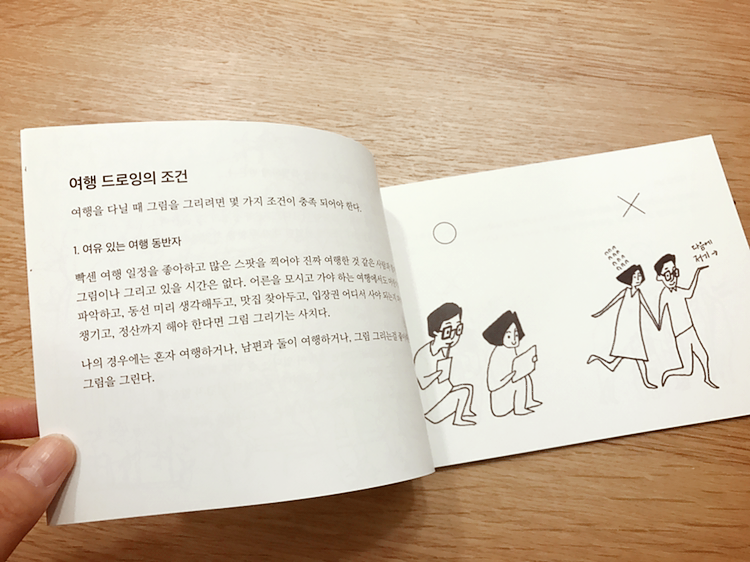 여행 드로잉의 조건
여행을 다닐 때 그림을 그리려면 몇 가지 조건이 충족 되어야 한다.
1. 여유 있는 여행 동반자
빡센 여행 일정을 좋아하고 많은 스팟을 찍어야 진짜 여행한 것 같은
그림이나 그리고 있을 시간은 없다. 어른을 모시고 가야 하는 여행에서도
파악하고, 동선 미리 생각해두고, 맛집 찾아두고, 입장권 어디서 사야
챙기고, 정산까지 해야 한다면 그림 그리기는 사치다.
나의 경우에는 혼자 여행하거나, 남편과 둘이 여행하거나, 그림 그리는걸
그림을 그린다.
다음에
저기→